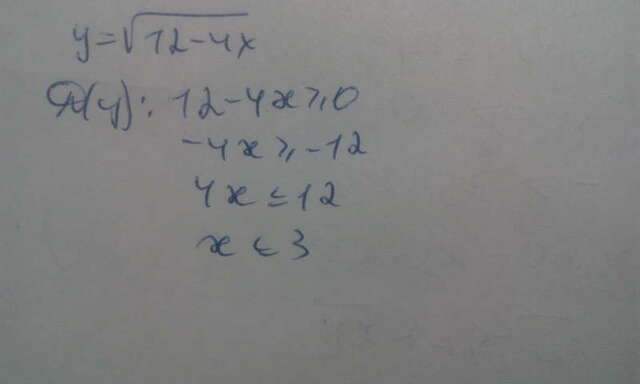 y=√12-4x
D(y): 12-4x⩾0
-4x⩾-12
4x≤12
x≤3